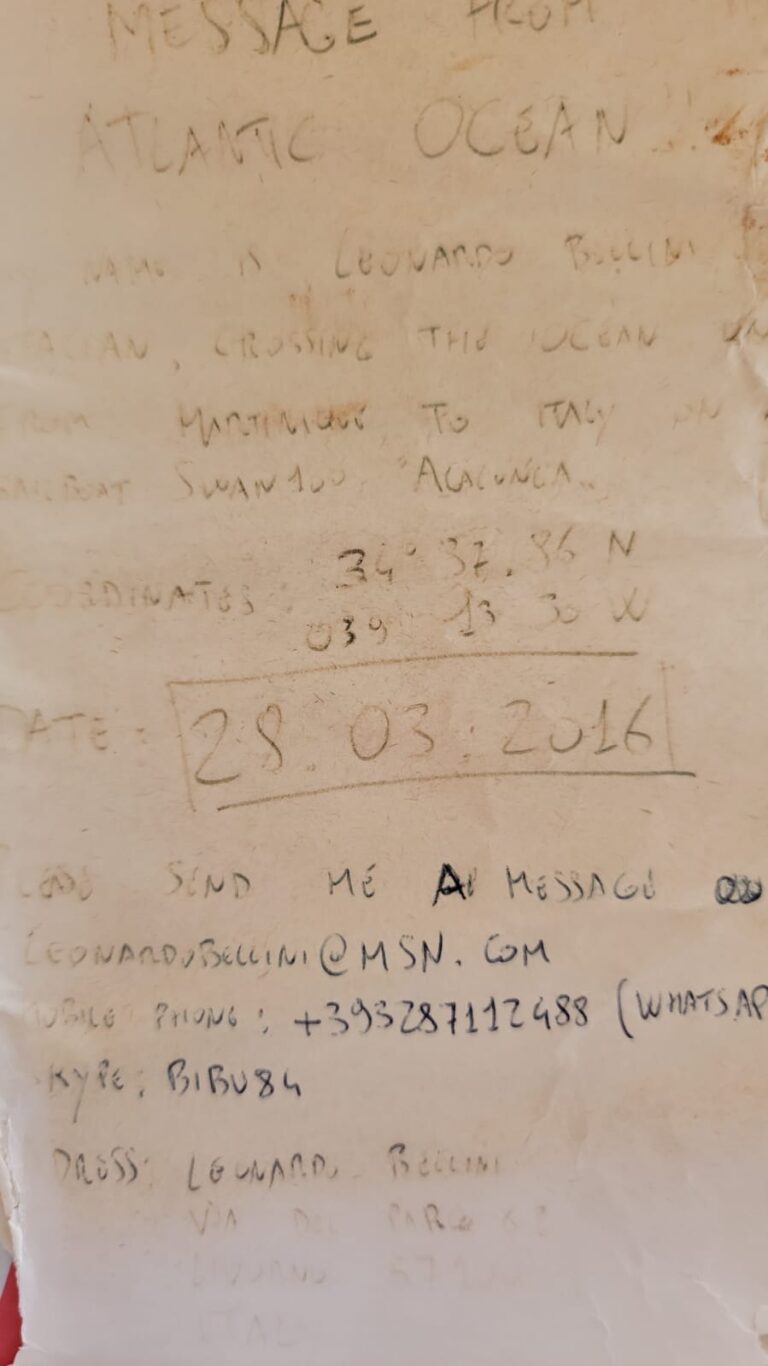 MESSAGE FROM
ATLANTIC OCEAN !!
NAME IS LEONARDO BELLINI
CROSSING THE OCEAN
FROM MARTINIQUE TO ITALY ON
SAILBOAT SWAN 100
COORDINATES: 34° 37.86 N
039° 13 30 W
DATE: 28.03.2016
SEND ME A MESSAGE
LEONARDOBELLINI@MSN.COM
MOBILE PHONE: +393287112488 (WHATSAP
SKYPE: BIBU84
DRESS: LEONARDO BELLINI
VIA DEL
LIVORNO
ITAL